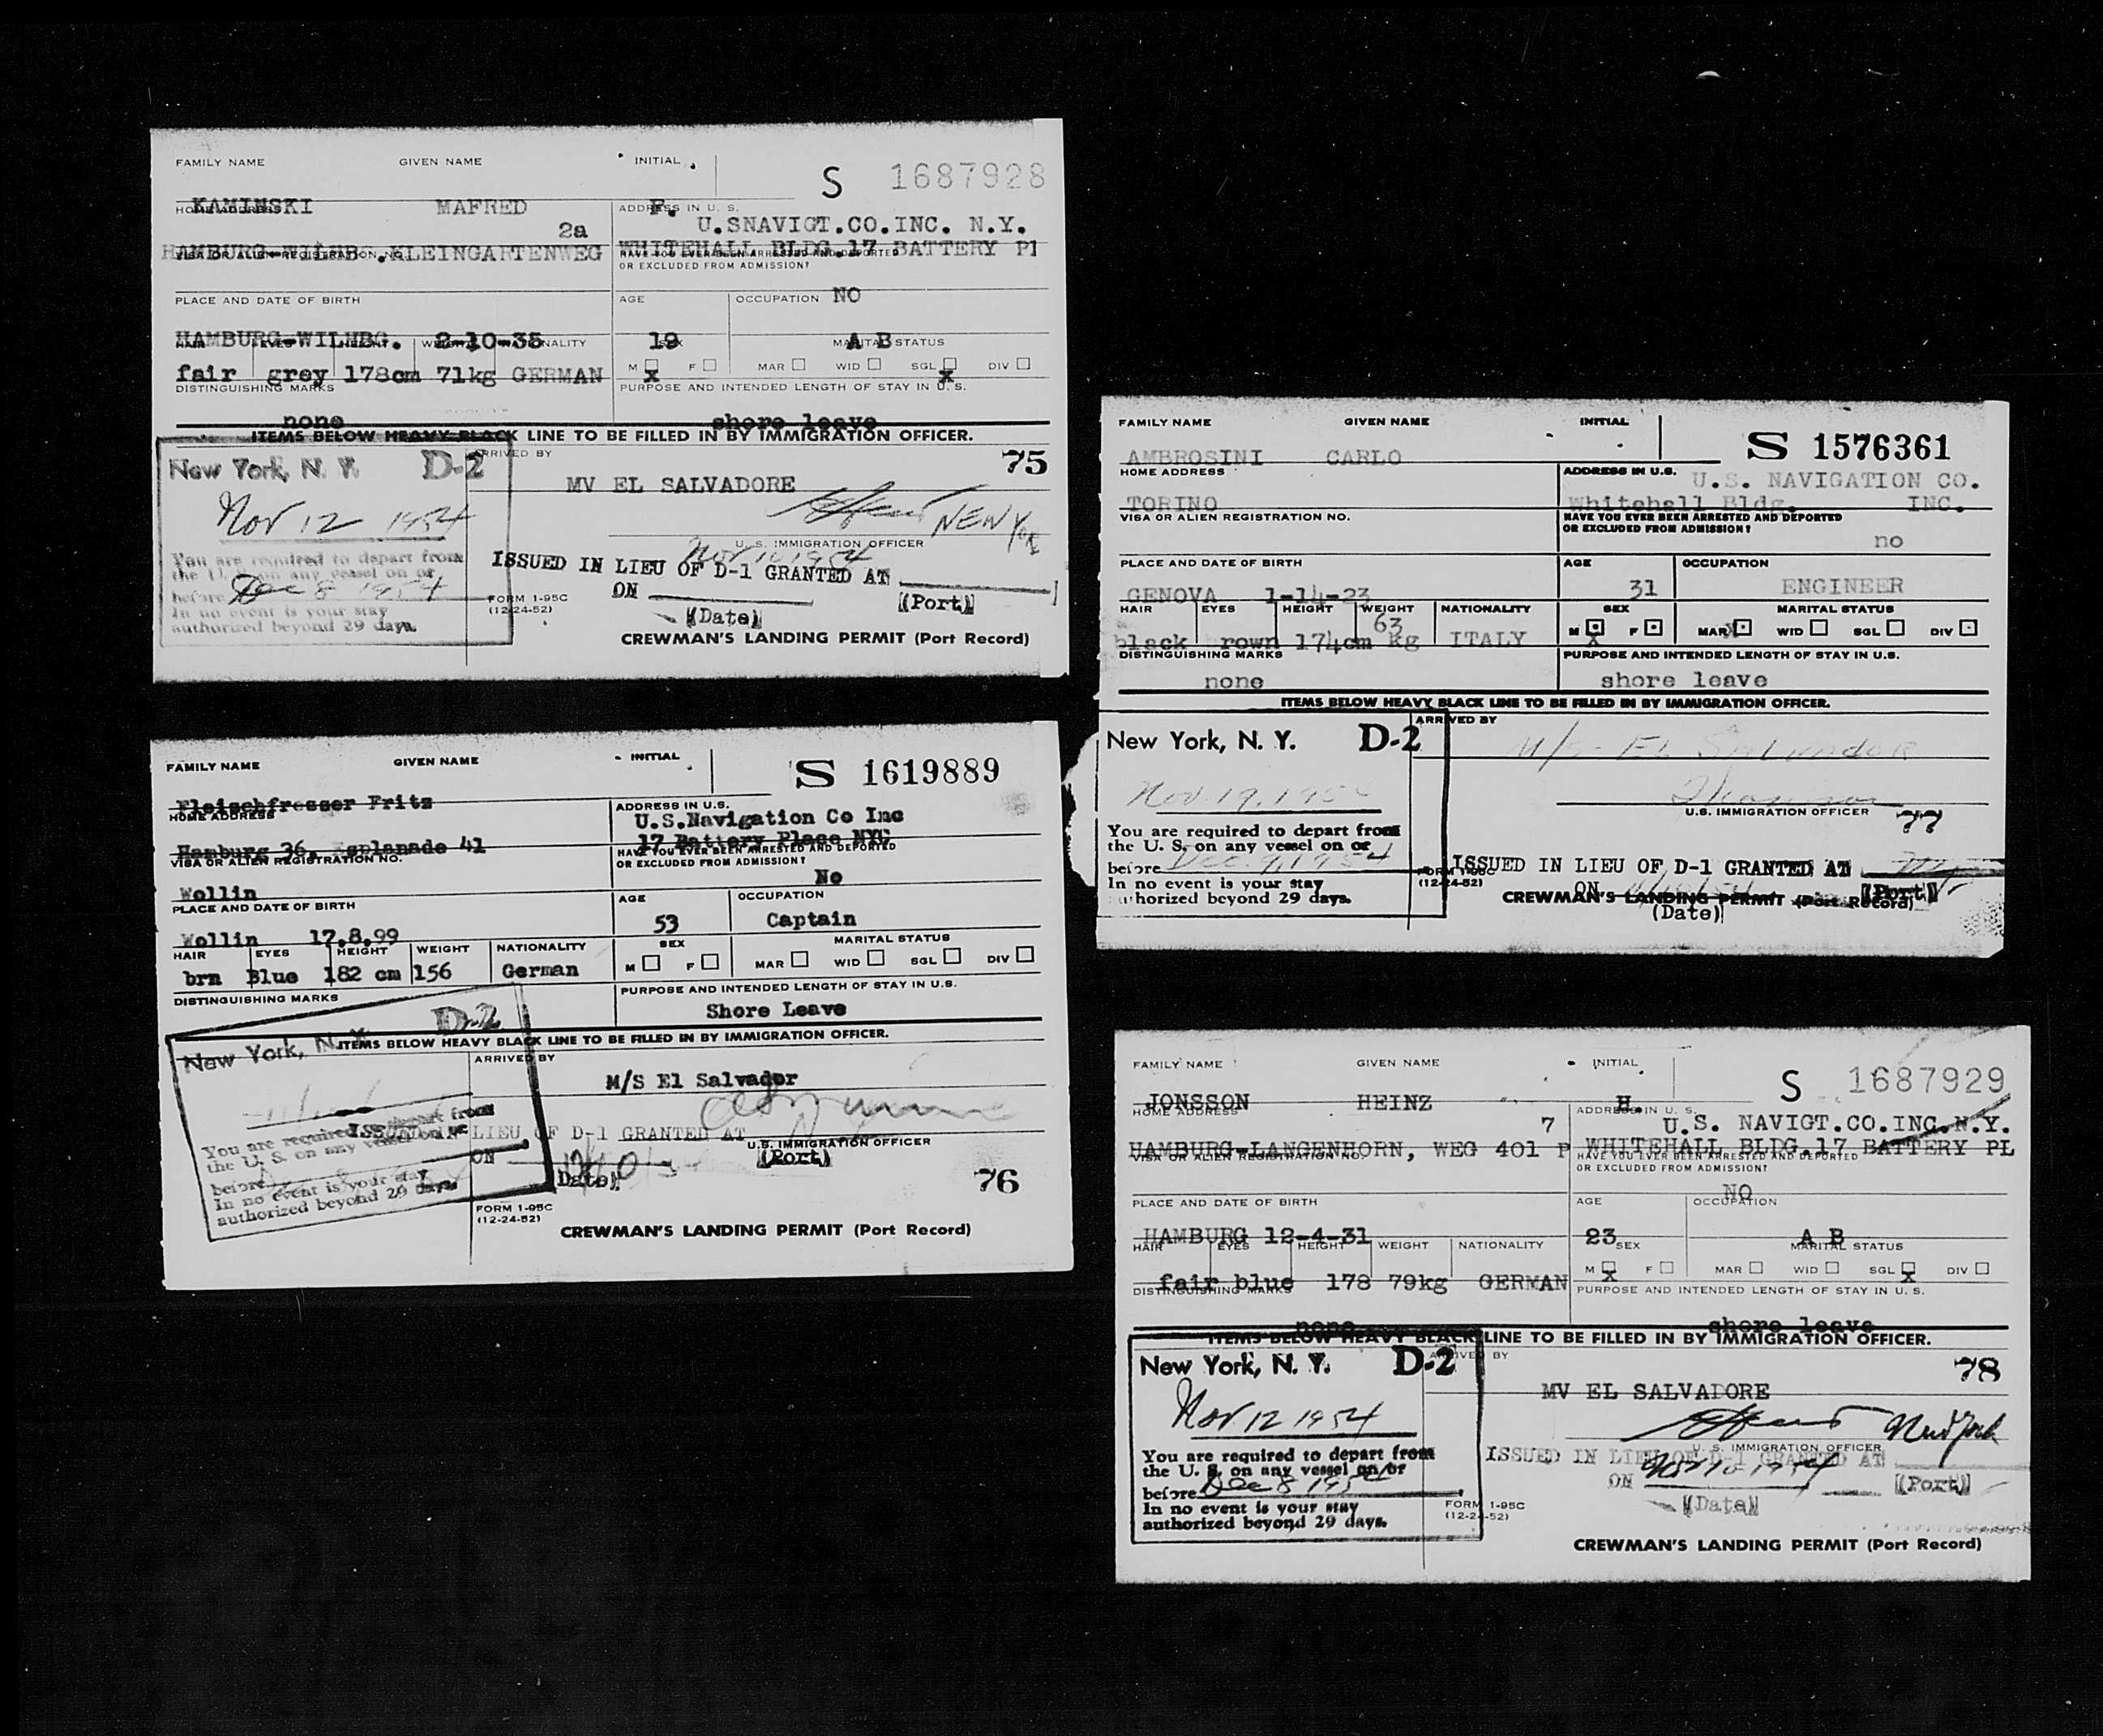 FAMILY NAME GIVEN NAME INITIAL
S 1687928
KAMINSKI MAFRED F.
HOME ADDRESS ADDRESS IN U. S.
2a U.SNAVIGT.CO.INC. N.Y.
HAMBURG-WILHBG.KLEINGARTENWEG WHITEHALL BLDG.17 BATTERY Pl
VISA OR ALIEN REGISTRATION NO. HAVE YOU EVER BEEN ARRESTED AND DEPORTED
OR EXCLUDED FROM ADMISSION?
NO
PLACE AND DATE OF BIRTH AGE OCCUPATION
HAMBURG-WILHBG. 2-10-35 19 A B
HAIR EYES HEIGHT WEIGHT NATIONALITY SEX MARITAL STATUS
M x F MAR WID SGL x DIV
fair grey 178cm 71kg GERMAN
DISTINGUISHING MARKS PURPOSE AND INTENDED LENGTH OF STAY IN U. S.
none shore leave
ITEMS BELOW HEAVY BLACK LINE TO BE FILLED IN BY IMMIGRATION OFFICER.
New York, N. Y. D-2 ARRIVED BY 75
MV EL SALVADORE
Nov 12 1954 NEW York
U. S. IMMIGRATION OFFICER
You are required to depart from
the U. S. on any vessel on or
before Dec 8 1954
In no event is your stay
authorized beyond 29 days.
Nov 10 1954
ISSUED IN LIEU OF D-1 GRANTED AT
ON (Date) (Port)
FORM 1-95C
(12-24-52)
CREWMAN'S LANDING PERMIT (Port Record)
FAMILY NAME GIVEN NAME INITIAL
S 1619889
Fleischfresser Fritz
HOME ADDRESS ADDRESS IN U.S.
U.S.Navigation Co Inc
Hamburg 36, Esplanade 41 17 Battery Place NYC
VISA OR ALIEN REGISTRATION NO. HAVE YOU EVER BEEN ARRESTED AND DEPORTED
OR EXCLUDED FROM ADMISSION?
Wollin No
PLACE AND DATE OF BIRTH AGE OCCUPATION
Wollin 17.8.99 53 Captain
HAIR EYES HEIGHT WEIGHT NATIONALITY SEX MARITAL STATUS
M F MAR WID SGL DIV
brn Blue 182 cm 156 German
DISTINGUISHING MARKS PURPOSE AND INTENDED LENGTH OF STAY IN U.S.
Shore Leave
ITEMS BELOW HEAVY BLACK LINE TO BE FILLED IN BY IMMIGRATION OFFICER.
New York, N. Y. D-2 ARRIVED BY
M/S El Salvador
You are required to depart from
the U. S. on any vessel on or
before
In no event is your stay
authorized beyond 29 days.
ISSUED IN LIEU OF D-1 GRANTED AT
U.S. IMMIGRATION OFFICER
ON (Date) (Port)
76
FORM 1-95C
(12-24-52)
CREWMAN'S LANDING PERMIT (Port Record)
FAMILY NAME GIVEN NAME INITIAL
S 1576361
AMBROSINI CARLO
HOME ADDRESS ADDRESS IN U.S.
U.S. NAVIGATION CO.
TORINO Whitehall Bldg. INC.
VISA OR ALIEN REGISTRATION NO. HAVE YOU EVER BEEN ARRESTED AND DEPORTED
OR EXCLUDED FROM ADMISSION?
no
PLACE AND DATE OF BIRTH AGE OCCUPATION
GENOVA 1-14-23 31 ENGINEER
HAIR EYES HEIGHT WEIGHT NATIONALITY SEX MARITAL STATUS
M x F MAR x WID SGL DIV
black rown 174cm 63 Kg ITALY
DISTINGUISHING MARKS PURPOSE AND INTENDED LENGTH OF STAY IN U.S.
none shore leave
ITEMS BELOW HEAVY BLACK LINE TO BE FILLED IN BY IMMIGRATION OFFICER.
New York, N. Y. D-2 ARRIVED BY
M/S El Salvador
Nov. 19, 195
U.S. IMMIGRATION OFFICER
77
You are required to depart from
the U. S. on any vessel on or
before Dec. 9, 1954
In no event is your stay
authorized beyond 29 days.
ISSUED IN LIEU OF D-1 GRANTED AT
ON (Date) (Port)
FORM 1-95C
(12-24-52)
CREWMAN'S LANDING PERMIT (Port Record)
FAMILY NAME GIVEN NAME INITIAL
S 1687929
JONSSON HEINZ H.
HOME ADDRESS ADDRESS IN U. S.
7 U.S. NAVIGT.CO.INC.N.Y.
HAMBURG-LANGENHORN, WEG 401 P WHITEHALL BLDG.17 BATTERY PL
VISA OR ALIEN REGISTRATION NO. HAVE YOU EVER BEEN ARRESTED AND DEPORTED
OR EXCLUDED FROM ADMISSION?
NO
PLACE AND DATE OF BIRTH AGE OCCUPATION
HAMBURG 12-4-31 23 A B
HAIR EYES HEIGHT WEIGHT NATIONALITY SEX MARITAL STATUS
M x F MAR WID SGL x DIV
fair blue 178 79kg GERMAN
DISTINGUISHING MARKS PURPOSE AND INTENDED LENGTH OF STAY IN U. S.
none shore leave
ITEMS BELOW HEAVY BLACK LINE TO BE FILLED IN BY IMMIGRATION OFFICER.
New York, N. Y. D-2 ARRIVED BY 78
MV EL SALVADORE
Nov 12 1954 New York
U. S. IMMIGRATION OFFICER
You are required to depart from
the U. S. on any vessel on or
before Dec 8 1954
In no event is your stay
authorized beyond 29 days.
ISSUED IN LIEU OF D-1 GRANTED AT
ON Nov 10 1954
(Date) (Port)
FORM 1-95C
(12-24-52)
CREWMAN'S LANDING PERMIT (Port Record)